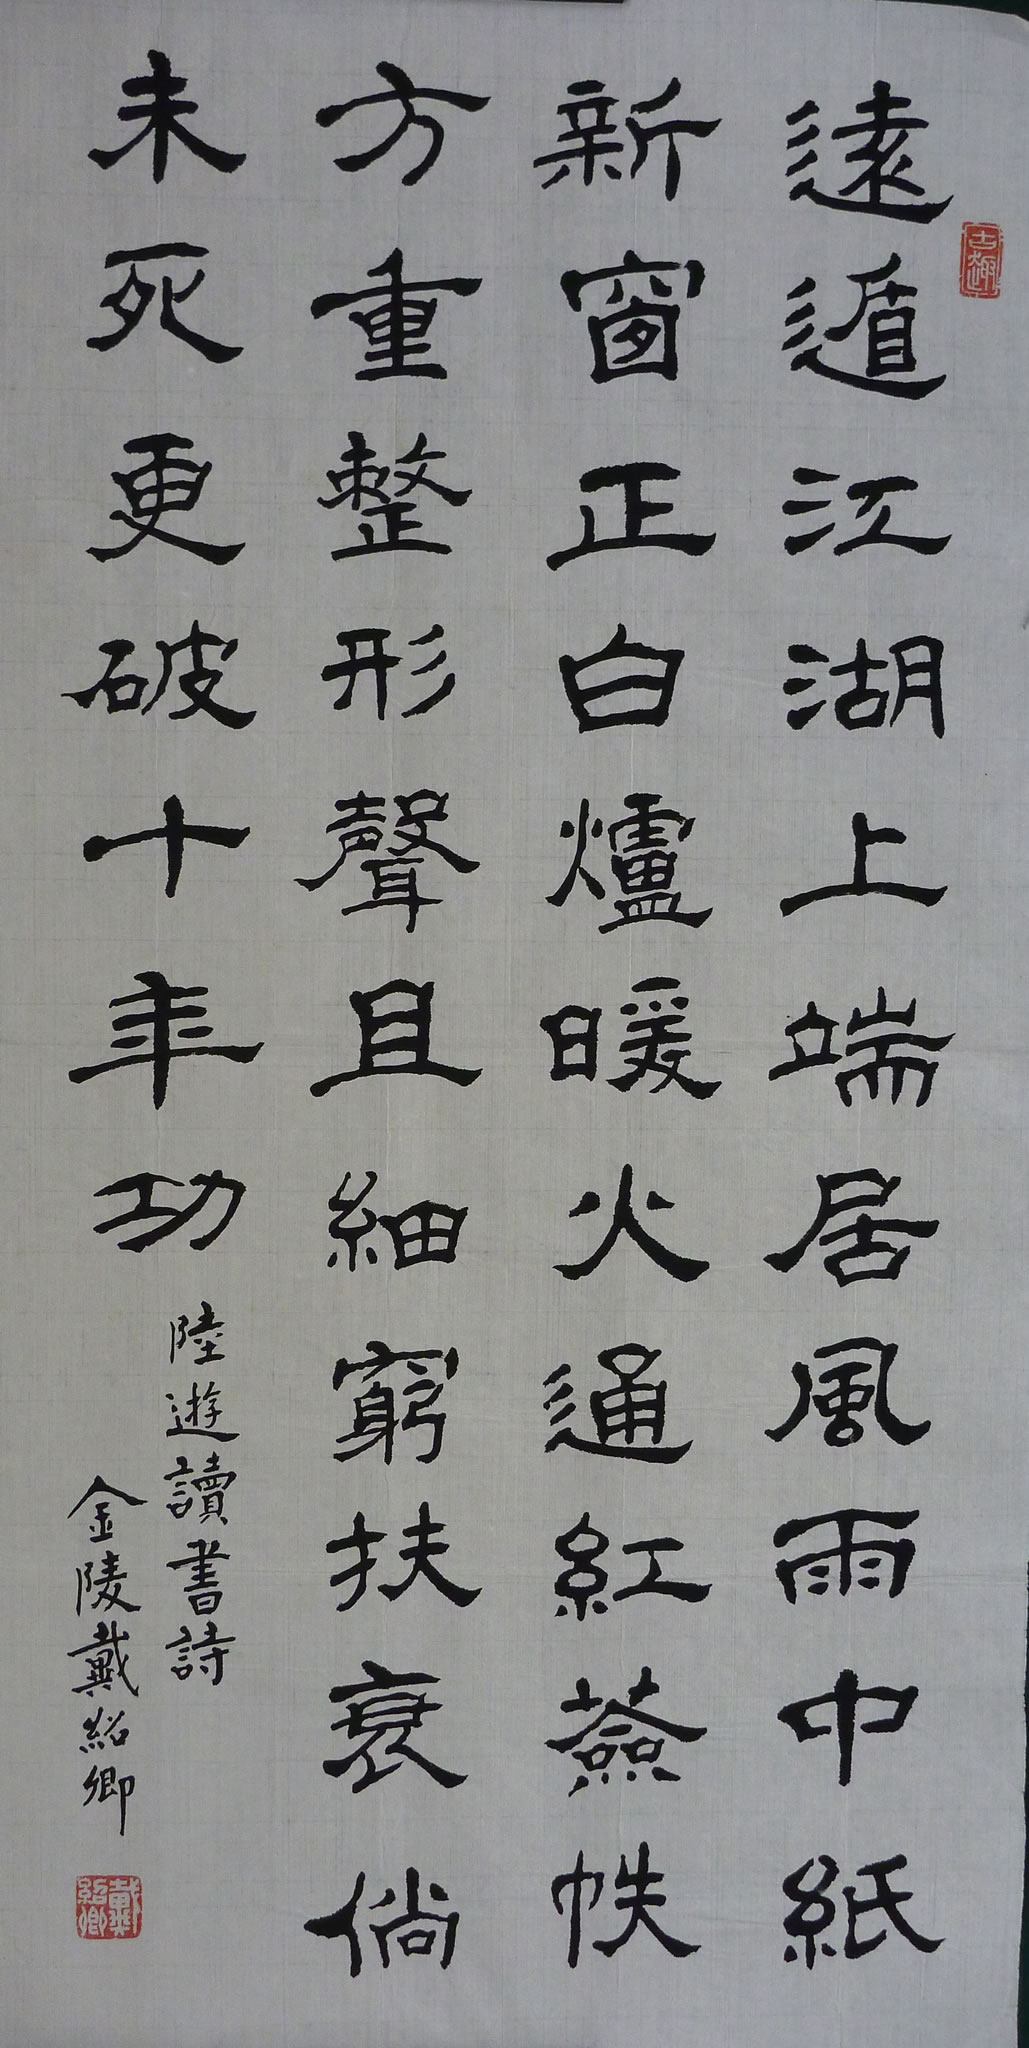 遠遁江湖上端居風雨中紙
新窗正白爐暖火通紅蘞帙
方重整形聲且細窮扶衰倘
未死更破十年功
陸遊讀書詩
金陵戴紹卿
古趣
戴紹卿